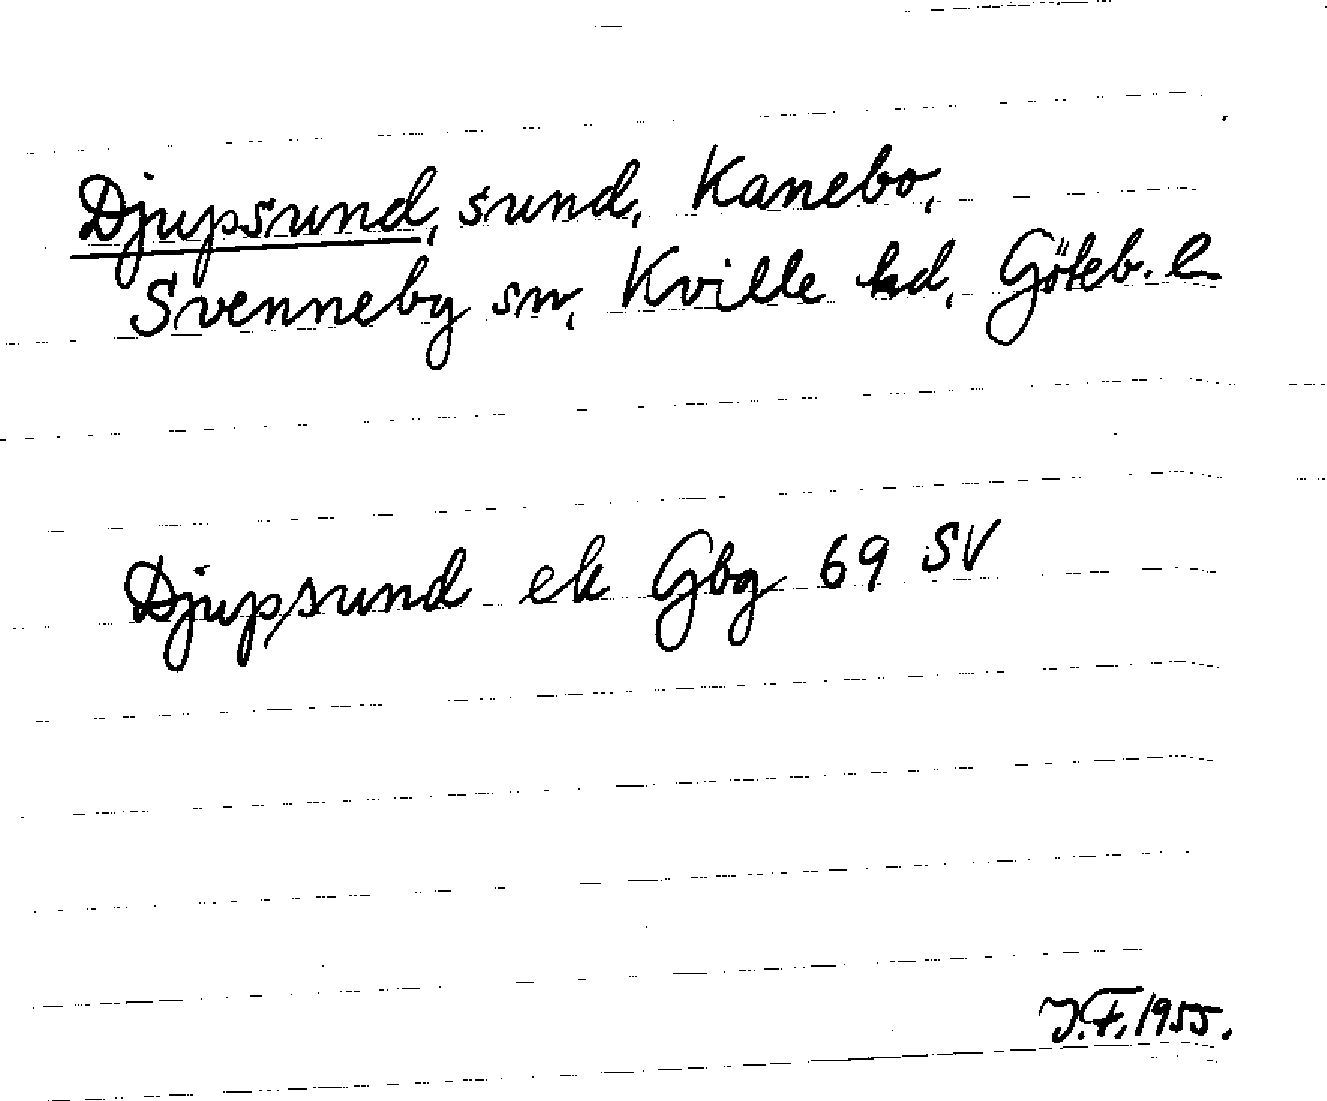 Djupsund, sund, Kanebo,
Svenneby sn, Kville hd, Göteb. l
Djupsund ek Gbg 69 SV
J.F. 1955.